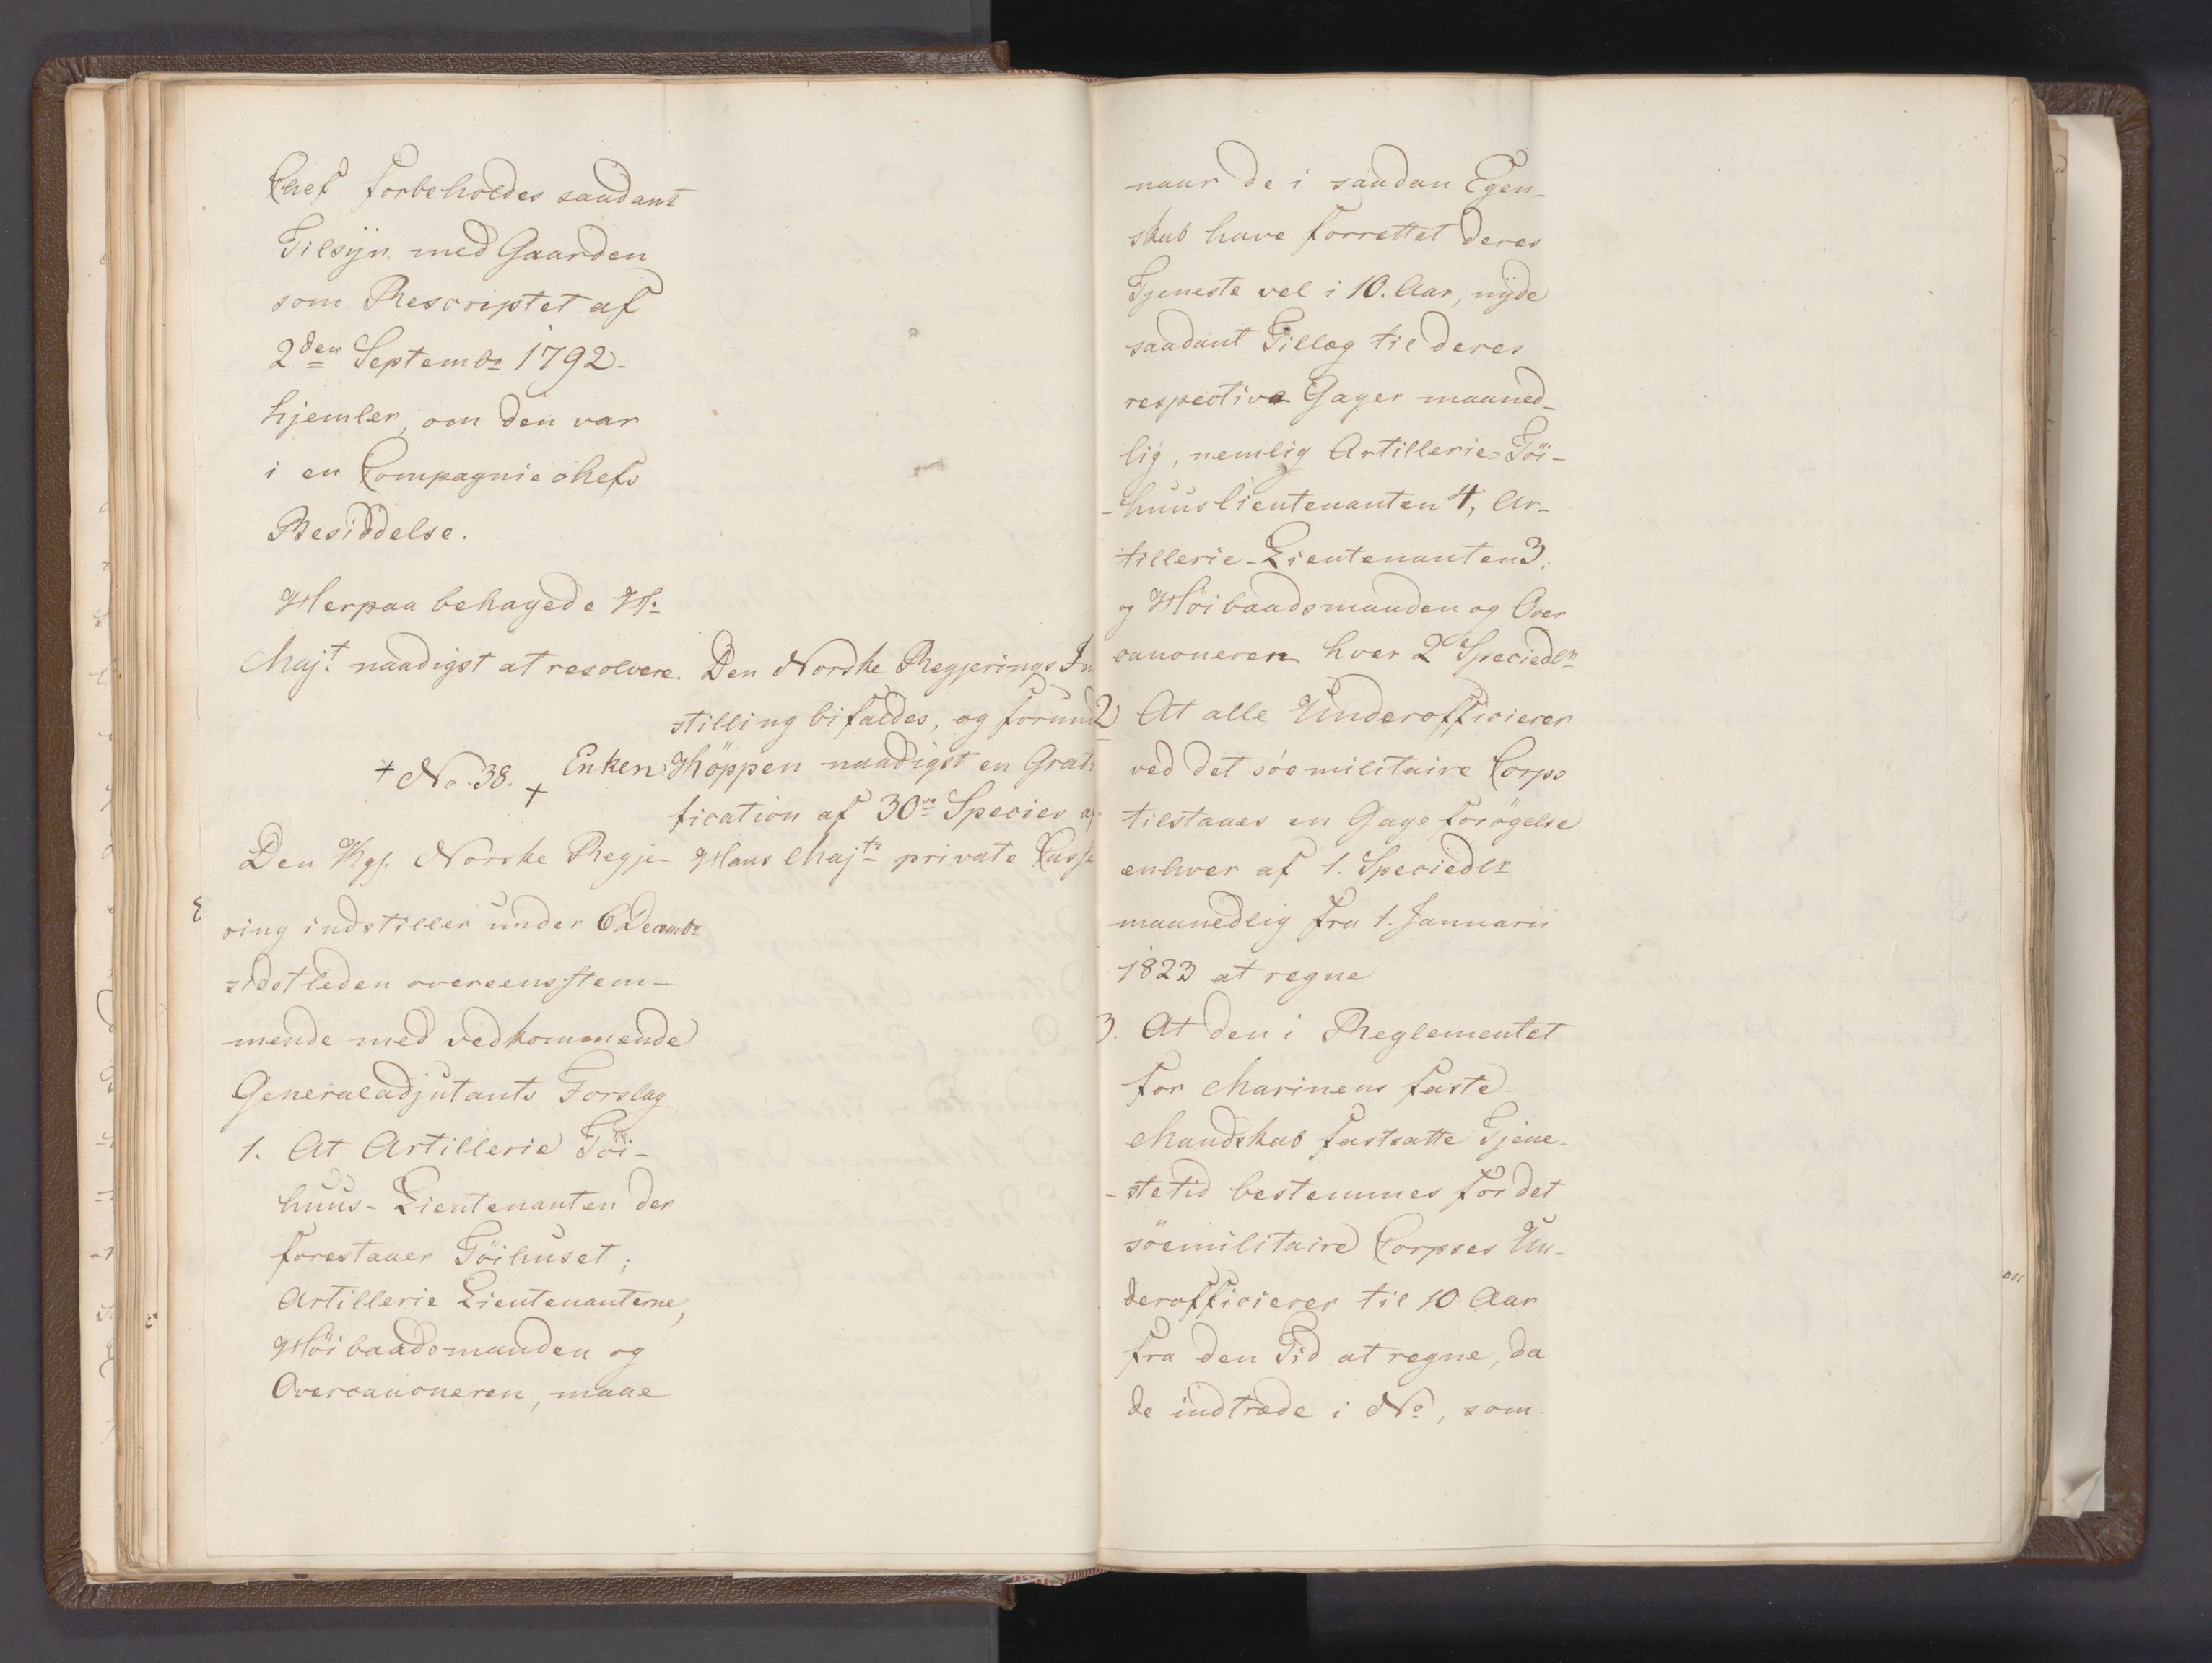 Chef forbeholdes saadant
Tilsÿn med Gaarden
som Rescriptet af
2den Septembr 1792
hjemler, om den var
i en Compagniechefs
Besiddelse.
Herpaa behagede H:
Majt. naadigst at resolvere.
Den Norske Regjerings In
stilling bifaldes, og forund
Enken Höppen naadigst en Grati
fication af 30ve Species af
Hans Majts private Casse
+ No. 38. +
Den Kgl. Norske Regje-
ring indstiller under 6 Decembr
sidstleden overeensstem-
mende med vedkommende
Generaladjutants Forslag
1. At Artillerie Töi-
huus-Lieutenanten der
forestaaer Töihuset;
Artillerie Lieutenanterne,
Höibaadsmanden og
Overcanoneren, maae
naar de i saadan Egen-
skab have forrettet deres
Tjeneste vel i 10. Aar, nÿde
saadant Tillæg til deres
respective Gager maaned-
lig, nemlig Artillerie-Töi-
-huuslieutenanten 4, Ar-
tillerie-Lieutenanten 3.
og Höibaadsmanden og Over
canoneren hver 2 Speciedlr
2 At alle Underofficierer
ved det söemilitaire Corps
tilstaaes en Gageforögelse
enhver af 1. Speciedlr
maanedlig fra 1. Januarii
1823 at regne
3. At den i Reglementet
for Marinens faste
Mandskab fastsatte Tjene-
-stetid bestemmes for det
söemilitaire Corpses Un-
derofficierer til 10 Aar
fra den Tid at regne, da
de indtræde i No, som